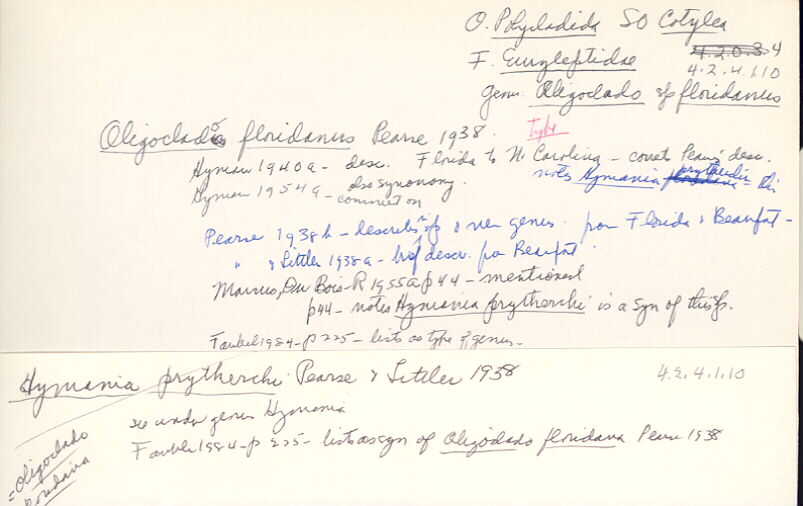 O. Polycladida SO Cotylea
4.2.0.3.4
F. Euryleptidae
4.2.4.1.10
genus Oligoclado sp floridanus
Oligoclado floridanus Pearse 1938. Type
Hyman 1940a - desc. Florida to N. Carolina - corrects Pearse's desc.
notes Hymania prytherchi = this
Hyman 1954a - also synonomy.
comment on
Pearse 1938b - describes n sp & new genus. from Florida & Beaufort -
" & Littler 1938a - brief descr. from Beaufort.
Marcus, Du Bois-R 1955a p44 - mentioned
p44 - notes Hymania prytherchi is a syn of this sp.
Faubel 1984 - p 225 - lists as type of genus -
Hymania prytherchi Pearse & Littler 1938
4.2.4.1.10
see under genus Hymania
Faubel 1984 - p 225 - lists as syn of Oligoclado floridana Pearse 1938
= Oligoclado
floridana